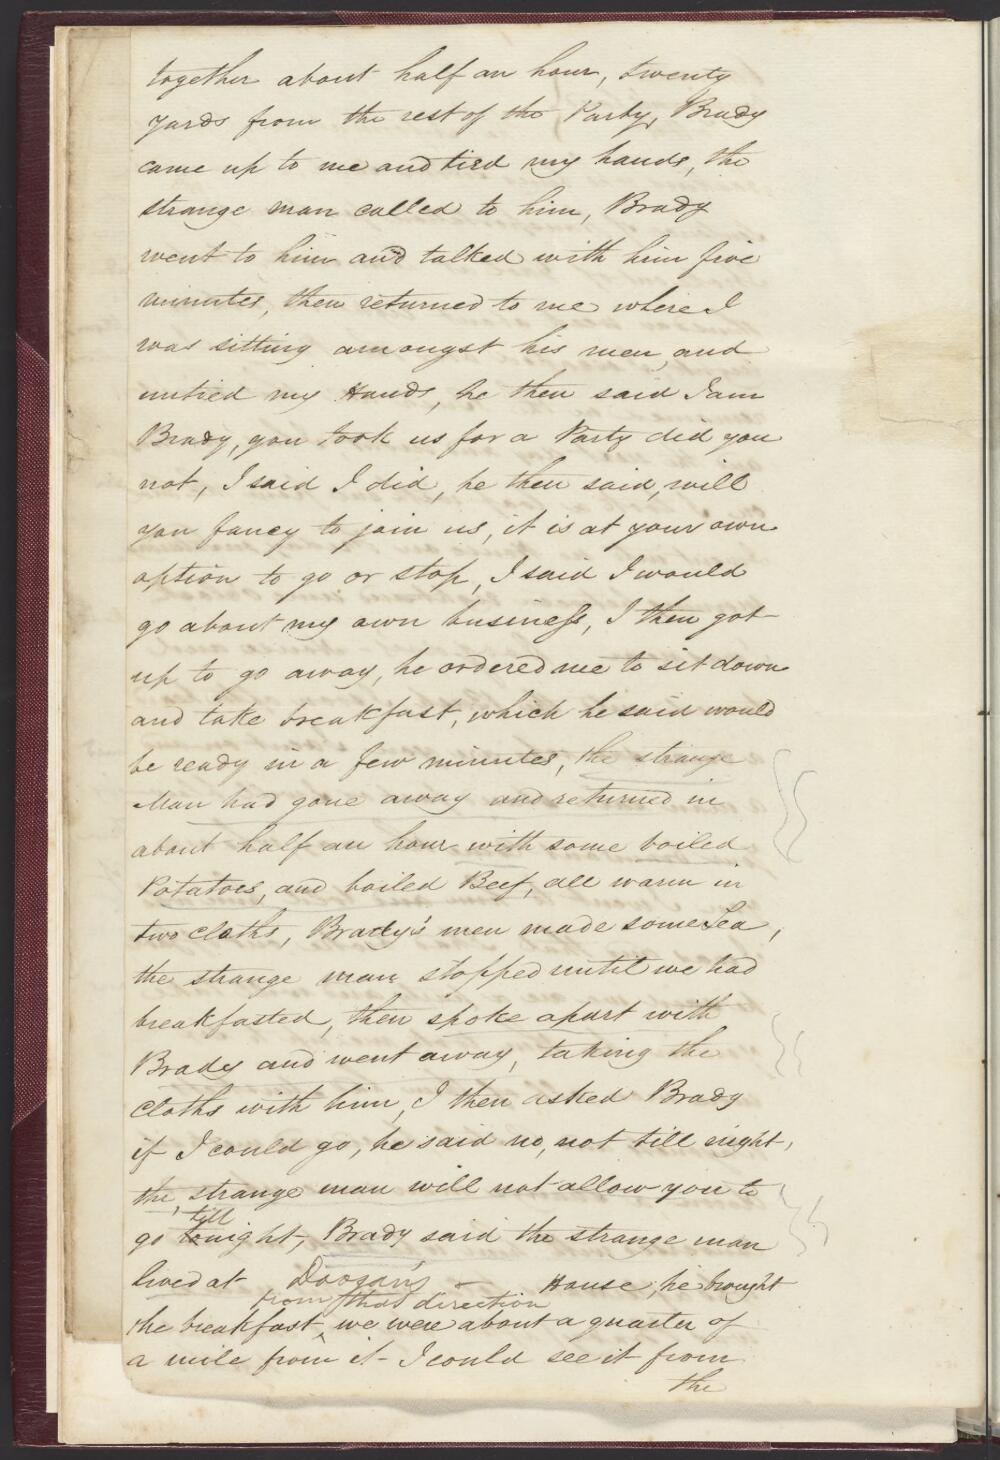 together about half an hour, twenty
yards from the rest of the Party, Brady
came up to me and tied my hands, the
strange man called to him, Brady
went to him and talked with him five
minutes, then returned to me where I
was sitting amongst his men, and
untied my Hands, he then said I am
Brady, you took us for a Party did you
not, I said I did, he then said, will
you fancy to join us, it is at your own
option to go or stop, I said I would
go about my own business, I then got
up to go away, he ordered me to sit down
and take breakfast, which he said would
be ready in a few minutes, the strange
Man had gone away and returned in
about half an hour with some boiled
Potatoes, and boiled Beef, all warm in
two cloths, Brady's men made some Tea,
the strange man stopped until we had
breakfasted, then spoke apart with
Brady and went away, taking the
cloths with him, I then asked Brady
if I could go, he said no, not till night,
the strange man will not allow you to
till
go night, Brady said the strange man
lived at Doogan's – House, he brought
from that direction
the breakfast, we were about a quarter of
a mile from it - I could see it from
the